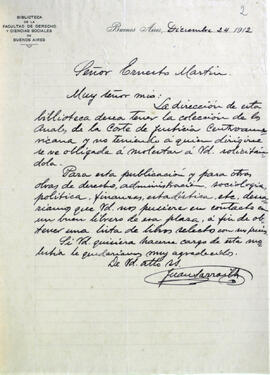 BIBLIOTECA
DE LA
FACULTAD DE DERECHO
Y CIENCIAS SOCIALES
DE
BUENOS AIRES
2
Buenos Aires, Diciembre 24 1912
Señor Ernesto Martin
Muy señor mio:
La dirección de esta
biblioteca desea tener la colección de los
Anal. de la Corte de Justicia Centroame
ricana y no teniendo a quien dirigirse
se ve obligada á molestar a Vd. solicitán
dola.
Para esta publicación y para otras
obras de derecho, administración, sociología
política, finanzas, estadística etc. desea
riamos que Vd. nos pusiera en contacto con
un buen librero de esa plaza, a fin de ob
tener una lista de libros selecto con su precio
Si Vd. quisiera hacerse cargo de esta mo
lestia le quedariamos muy agradecidos.
De Vd. atto. SS.
Juan